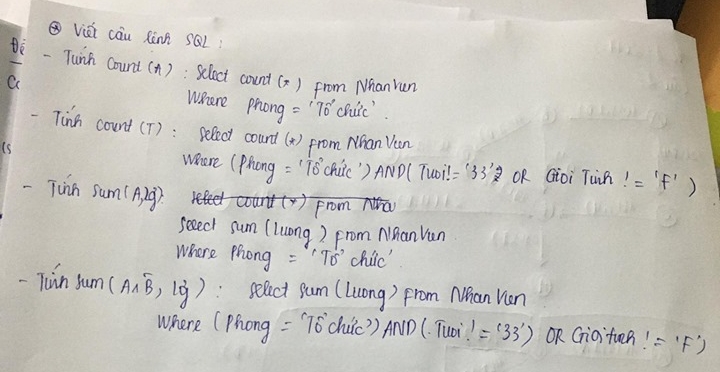 ⊛ Viết câu lệnh SQL :
- Tính Count (A) : Select count (*) from NhanVien
Where phong = 'Tổ chức'.
- Tính count (T) : Select count (*) from NhanVien
Where (Phong = 'Tổ chức') AND ( Tuoi != '33' OR Gioi Tinh != 'F' )
- Tính Sum (A, lg) : select count (*) from Nha
Select sum (Luong) from NhanVien
Where Phong = 'Tổ chức'
- Tính Sum ( A ∧ B̄, lg ) : Select sum (Luong) from NhanVien
Where ( Phong = 'Tổ chức') AND (. Tuoi != '33') OR Gioi tinh != 'F')
Đề
C
(s